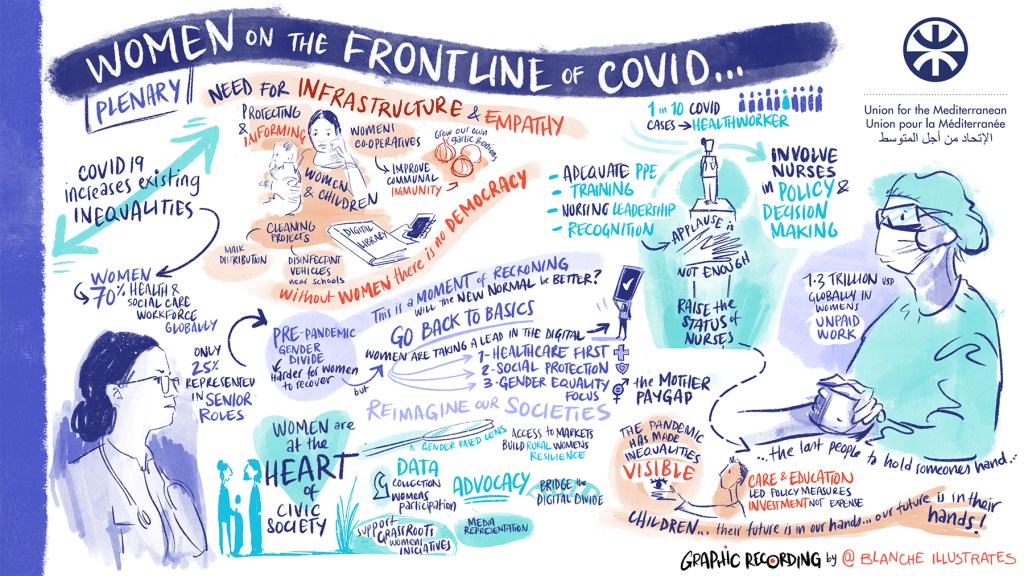 WOMEN ON THE FRONTLINE OF COVID...
PLENARY
Union for the Mediterranean
Union pour la Méditerranée
الإتحاد من أجل المتوسط
COVID 19
increases existing
INEQUALITIES
WOMEN
70% HEALTH &
SOCIAL CARE
WORKFORCE
GLOBALLY
ONLY
25%
REPRESENTED
IN SENIOR
ROLES
NEED FOR INFRASTRUCTURE & EMPATHY
PROTECTING
& INFORMING
WOMEN
& CHILDREN
WOMENS
CO-OPERATIVES
IMPROVE
COMMUNAL
IMMUNITY
Grow our own
garlic & onions
CLEANING
PROJECTS
MASK
DISTRIBUTION
DISINFECTANT
VEHICLES
near schools
DIGITAL
LIBRARY
without WOMEN there is no DEMOCRACY
1 in 10 COVID
CASES → HEALTHWORKER
- ADEQUATE PPE
- TRAINING
- NURSING LEADERSHIP
- RECOGNITION
APPLAUSE is
NOT ENOUGH
RAISE the
STATUS of
NURSES
INVOLVE
NURSES
in POLICY &
DECISION
MAKING
1.3 TRILLION USD
GLOBALLY IN
WOMENS
UNPAID
WORK
PRE-PANDEMIC
GENDER
DIVIDE
Harder for women
to recover
but
This is a MOMENT of RECKONING
WILL the NEW NORMAL be BETTER?
GO BACK TO BASICS
WOMEN ARE TAKING A LEAD IN THE DIGITAL
1- HEALTHCARE FIRST
2- SOCIAL PROTECTION
3- GENDER EQUALITY
FOCUS
the MOTHER
PAYGAP
REIMAGINE our SOCIETIES
WOMEN are
at the
HEART
of
CIVIC
SOCIETY
A GENDER BASED LENS
DATA
COLLECTION
WOMENS
participation
ACCESS to MARKETS
BUILD RURAL WOMENS
RESILIENCE
ADVOCACY
BRIDGE the
DIGITAL DIVIDE
SUPPORT
GRASSROOTS
WOMENS
INICIATIVES
MEDIA
REPRESENTATION
THE PANDEMIC
HAS MADE
INEQUALITIES
VISIBLE
...the last people to hold someones hand...
CARE & EDUCATION
LED POLICY MEASURES
INVESTMENT NOT EXPENSE
CHILDREN... their future is in our hands... our future is in their
hands!
GRAPHIC RECORDING by @ BLANCHE ILLUSTRATES